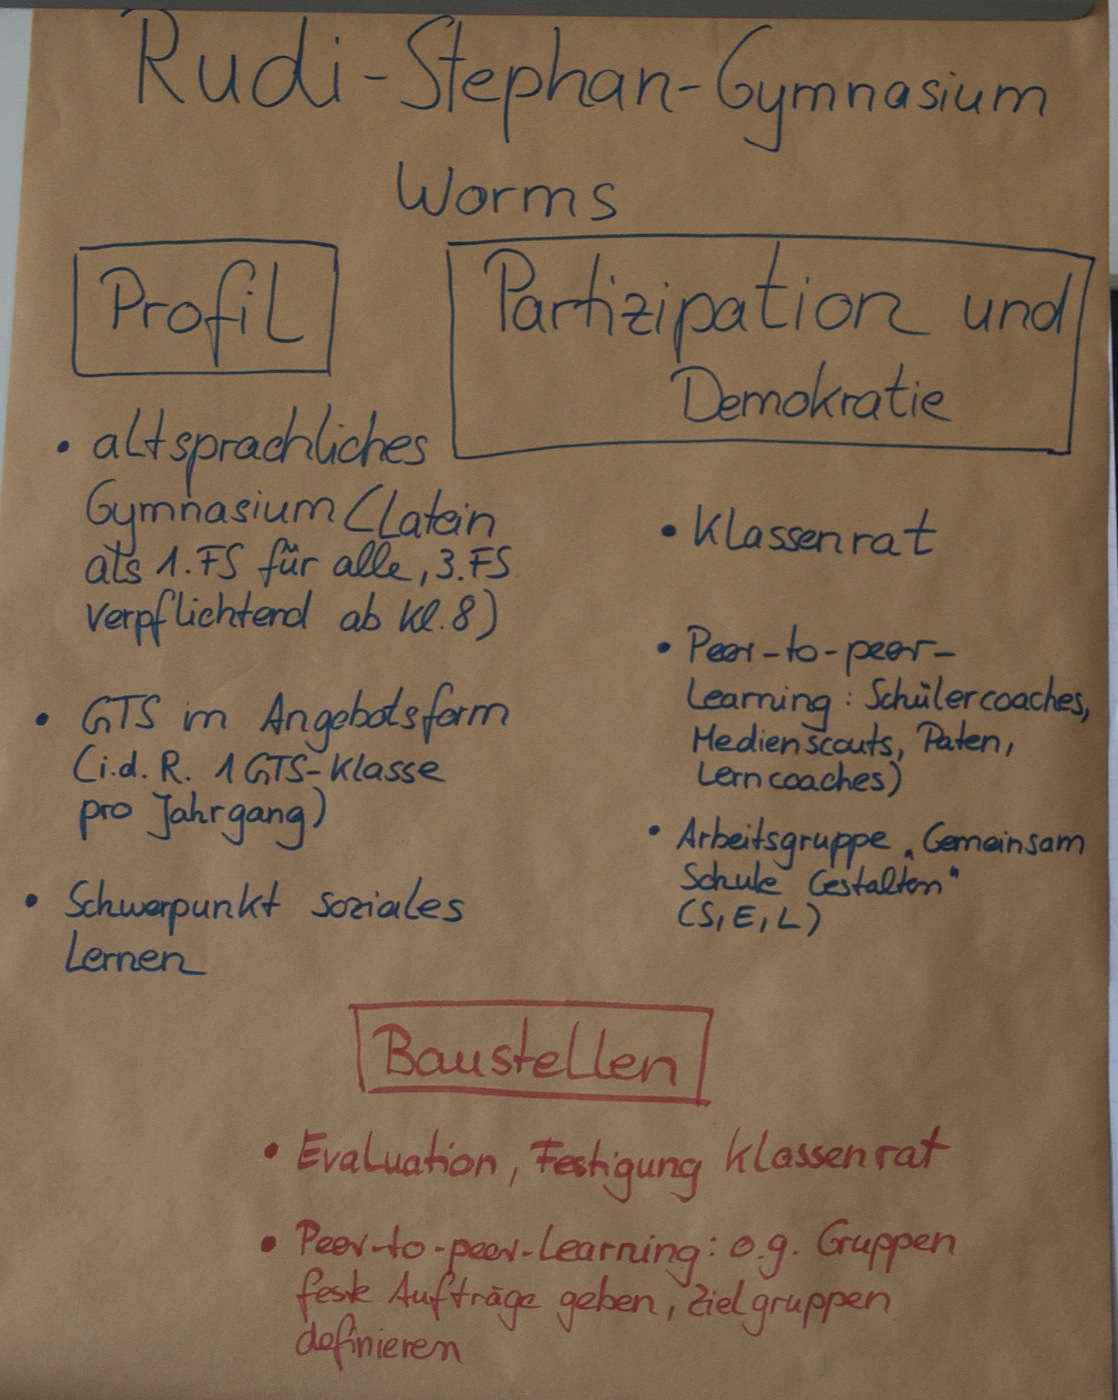 Rudi-Stephan-Gymnasium
Worms
Profil
• altsprachliches
Gymnasium (Latein
als 1. FS für alle, 3. FS
verpflichtend ab Kl. 8)
• GTS in Angebotsform
(i.d.R. 1 GTS-Klasse
pro Jahrgang)
• Schwerpunkt soziales
Lernen
Partizipation und
Demokratie
• Klassenrat
• Peer-to-peer-
Learning: Schülercoaches,
Medienscouts, Paten,
Lerncoaches)
• Arbeitsgruppe „Gemeinsam
Schule Gestalten“
(S, E, L)
Baustellen
• Evaluation, Festigung Klassenrat
• Peer-to-peer-Learning: o.g. Gruppen
feste Aufträge geben, Zielgruppen
definieren